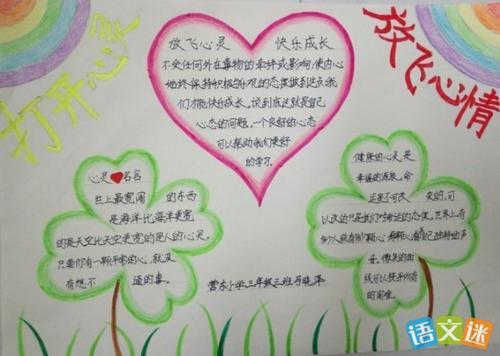 打开心灵
放飞心情
放飞心灵 快乐成长
不受任何外在事物的牵绊或影响,使内心
始终保持积极乐观的态度做到这点我
们才能快乐成长。说到底这就是自己
心态的问题。一个良好的心态
可以帮助我们更好
的学习
心灵 名言
世上最宽阔 的东西
是海洋比海洋更宽
的是天空比天空更宽的是人的心灵。
只要你有一颗平常的心,就没
有想不 通的事。
健康的心灵是
幸福的源泉。命
运是不可改 变的,可
以改的只是我们对命运的态度。世界上有
营东小学三年级三班
语文迷